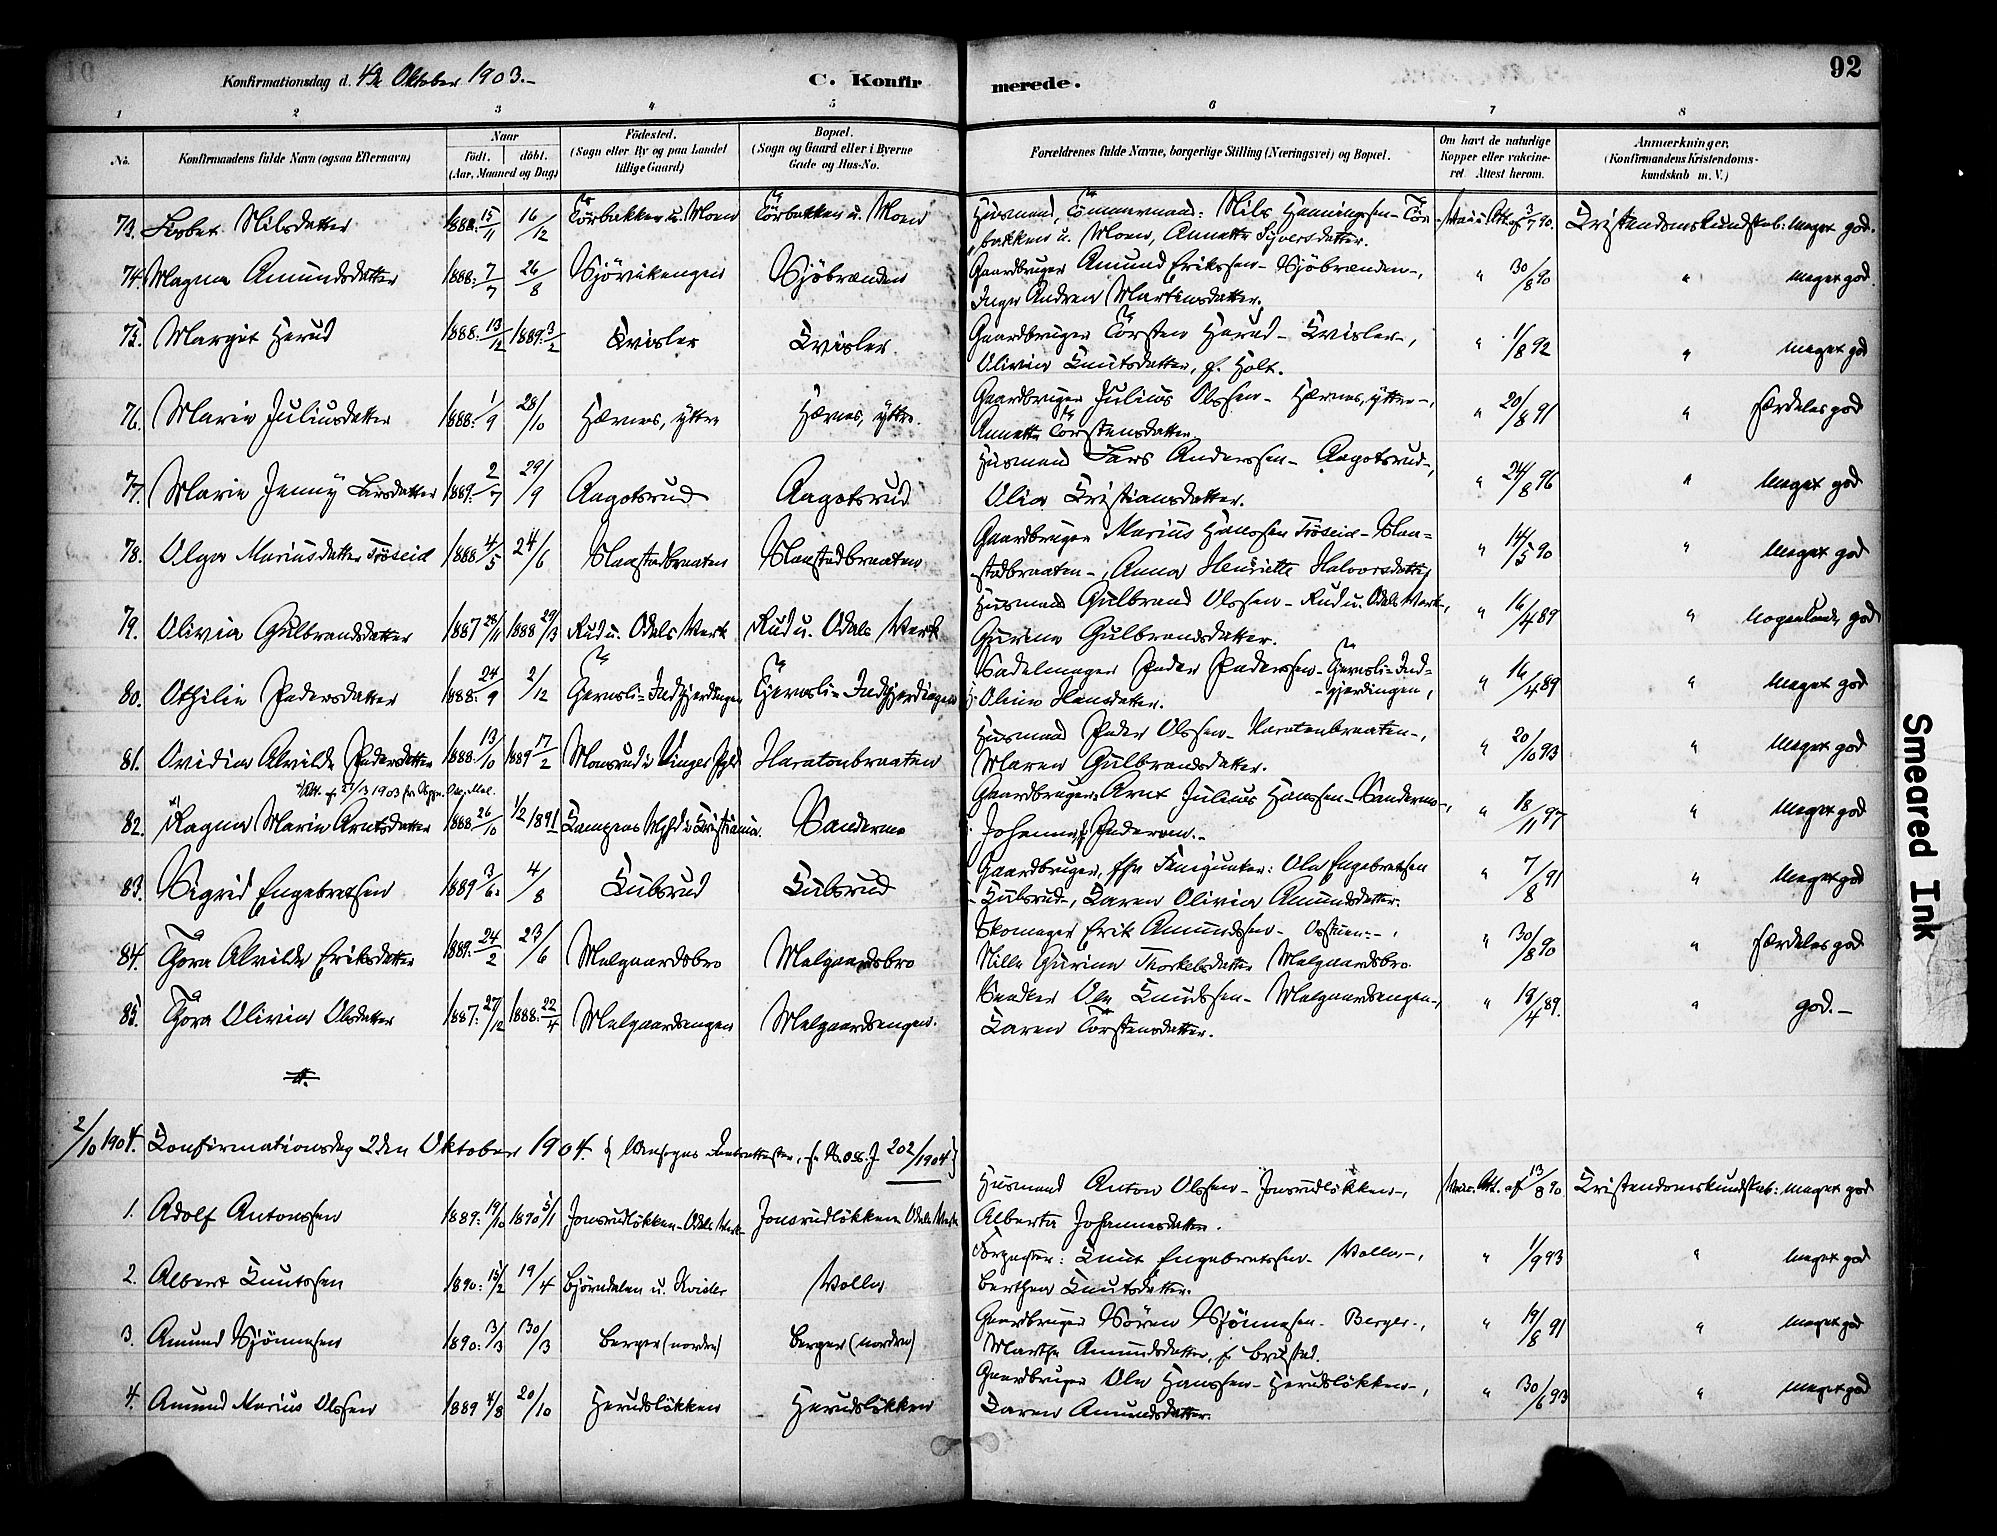 92
Konfirmationsdag d. 4de Oktober 1903.-
C. Konfirmerede.
1 2 3 4 5 6 7 8
No. Konfirmandens fulde Navn (ogsaa Efternavn) Naar født. døbt. (Aar, Maaned og Dag) Fødested. (Sogn eller By og paa Landet tillige Gaard) Bopæl. (Sogn og Gaard eller i Byerne Gade og Hus-No. Forældrenes fulde Navne, borgerlige Stilling (Næringsvei) og Bopæl. Om havt de naturlige Kopper eller vaccineret. Attest herom. Anmærkninger. (Konfirmandens Kristendomskundskab m. V.)
73. Lisbet Nilsdatter 1888 15/11 16/12 Törbakken u. Moen Törbakken u. Moen Husmand, Tömmermand: Nils Henningsen - Törbakken u. Moen, Annette Syversdatter. Kristendomskundskab: meget god.
74. Magna Amundsdatter 1888: 7/7 26/8 Sjövikengen Sjöbrænden Gaardbruger Amund Erikssen - Sjöbrænden -, Inger Andrea Martinsdatter. " 30/8 90 " meget god.
75. Margit Herud 1888: 13/12 1889: 3/2 Kvisler Kvisler. Gaardbruger Torsten Herud - Kvisler -, Olivia Knutsdatter, f. Holt. " 1/8 92 " meget god
76. Marie Juliusdatter 1888: 1/9 28/10 Hærnes, ytre Hærnes, ytre. Gaardbruger Julius Olssen - Hærnes, ytre -, Annette Torstensdatter. " 20/8 91 " særdeles god
77. Marie Jenny Larsdatter 1889: 2/7 29/9 Aagotsrud Aagotsrud Husmand Lars Anderssen - Aagotsrud -, Olia Kristiansdatter. " 24/8 96 " Meget god
78. Olga Mariusdatter Tröseid 1888 4/5 24/6 Slaastadbraaten Slaastadbraaten Gaardbruger Marius Hanssen Tröseid - Slaastadbraaten -, Anna Henriette Halvorsdatter " 14/5 90 " Meget god
79. Olivia Gulbrandsdatter 1887 28/11 1888 29/3 Rud u. Odals Værk Rud u. Odals Værk Husmand Gulbrand Olssen - Rud u. Odals Værk -, Gurine Gulbrandsdatter. " 16/4 89 " Nogenlunde god
80. Othilie Pedersdatter 1888: 24/9 2/12 Gjernsli - Indgjerdingen Gjernsli - Indgjerdingen Sadelmager Peder Pederssen - Gjernsli - Indgjerdingen, Oline Hansdatter. " 16/4 89 " Meget god
81. Ovidia Alvilde Pedersdatter 1888: 13/10 1889 17/2 Monsrud i Vinger Pgld Haratonbraaten Husmand Peder Olssen - Haratonbraaten -, Maren Gulbrandsdatter. " 20/10 93 " Meget god
82. Ragna Marie Arntsdatter 1888 26/10 1/2 1891 Kampens Mgld i Kristiania. Sandermo Gaardbruger Arnt Julius Hanssen - Sandermo -, Johanne Pedersen.- " 18/11 97 " Meget god
83. Sigrid Engebretsen 1889 3/6. 4/8 Kulsrud Kulsrud Gaardbruger, fhv. Fanejunker: Ole Engebretsen - Kulsrud -, Karen Olivia Amundsdatter. " 7/8 91 " Meget god
84. Tora Alvilde Eriksdatter 1889: 24/2 23/6 Melgaardsbro Melgaardsbro Skomager Erik Amundsen - -, Mille Gurine Thorkelsdatter Melgaardsbro " 30/8 90 " særdeles god
85. Tora Olivia Olsdatter 1887: 27/12 1888: 22/4 Melgaardsengen Melgaardsengen. Snedker Ole Knudssen - Melgaardsengen -, Karen Torstensdatter. " 18/4 89. " god.-
2/10 1904. Konfirmationsdag 2den Oktober 1904. 202/1904
1. Adolf Antonssen 1889: 19/10 1890 5/1 Jonsrudløkken - Odals Værk - Jonsrudløkken Odals Værk Husmand Anton Olssen - Jonsrudløkken -, Alberta Johannesdatter. Vac. Att. af 13/8 90. Kristendomskundskab: meget god
2. Albert Knutssen 1890: 15/2 19/4 Björndalen u. Kvisler Volla Forpagter: Knut Engebretssen - Volla -, Berthea Knutsdatter. " 1/9 93 " meget god
3. Amund Sjönnesen 1890: 3/3 30/3 Berger (nordre) Berger (nordre) Gaardbruger Sören Sjönnesen - Berger -, Marthe Amundsdatter, f. " 19/8 91 " meget god
4. Amund Marius Olssen 1889 4/8 20/10 Herudsløkken Herudsløkken Gaardbruger Ole Hanssen - Herudsløkken -, Karen Amundsdatter. " 30/6 93 " meget god
Smeared Ink